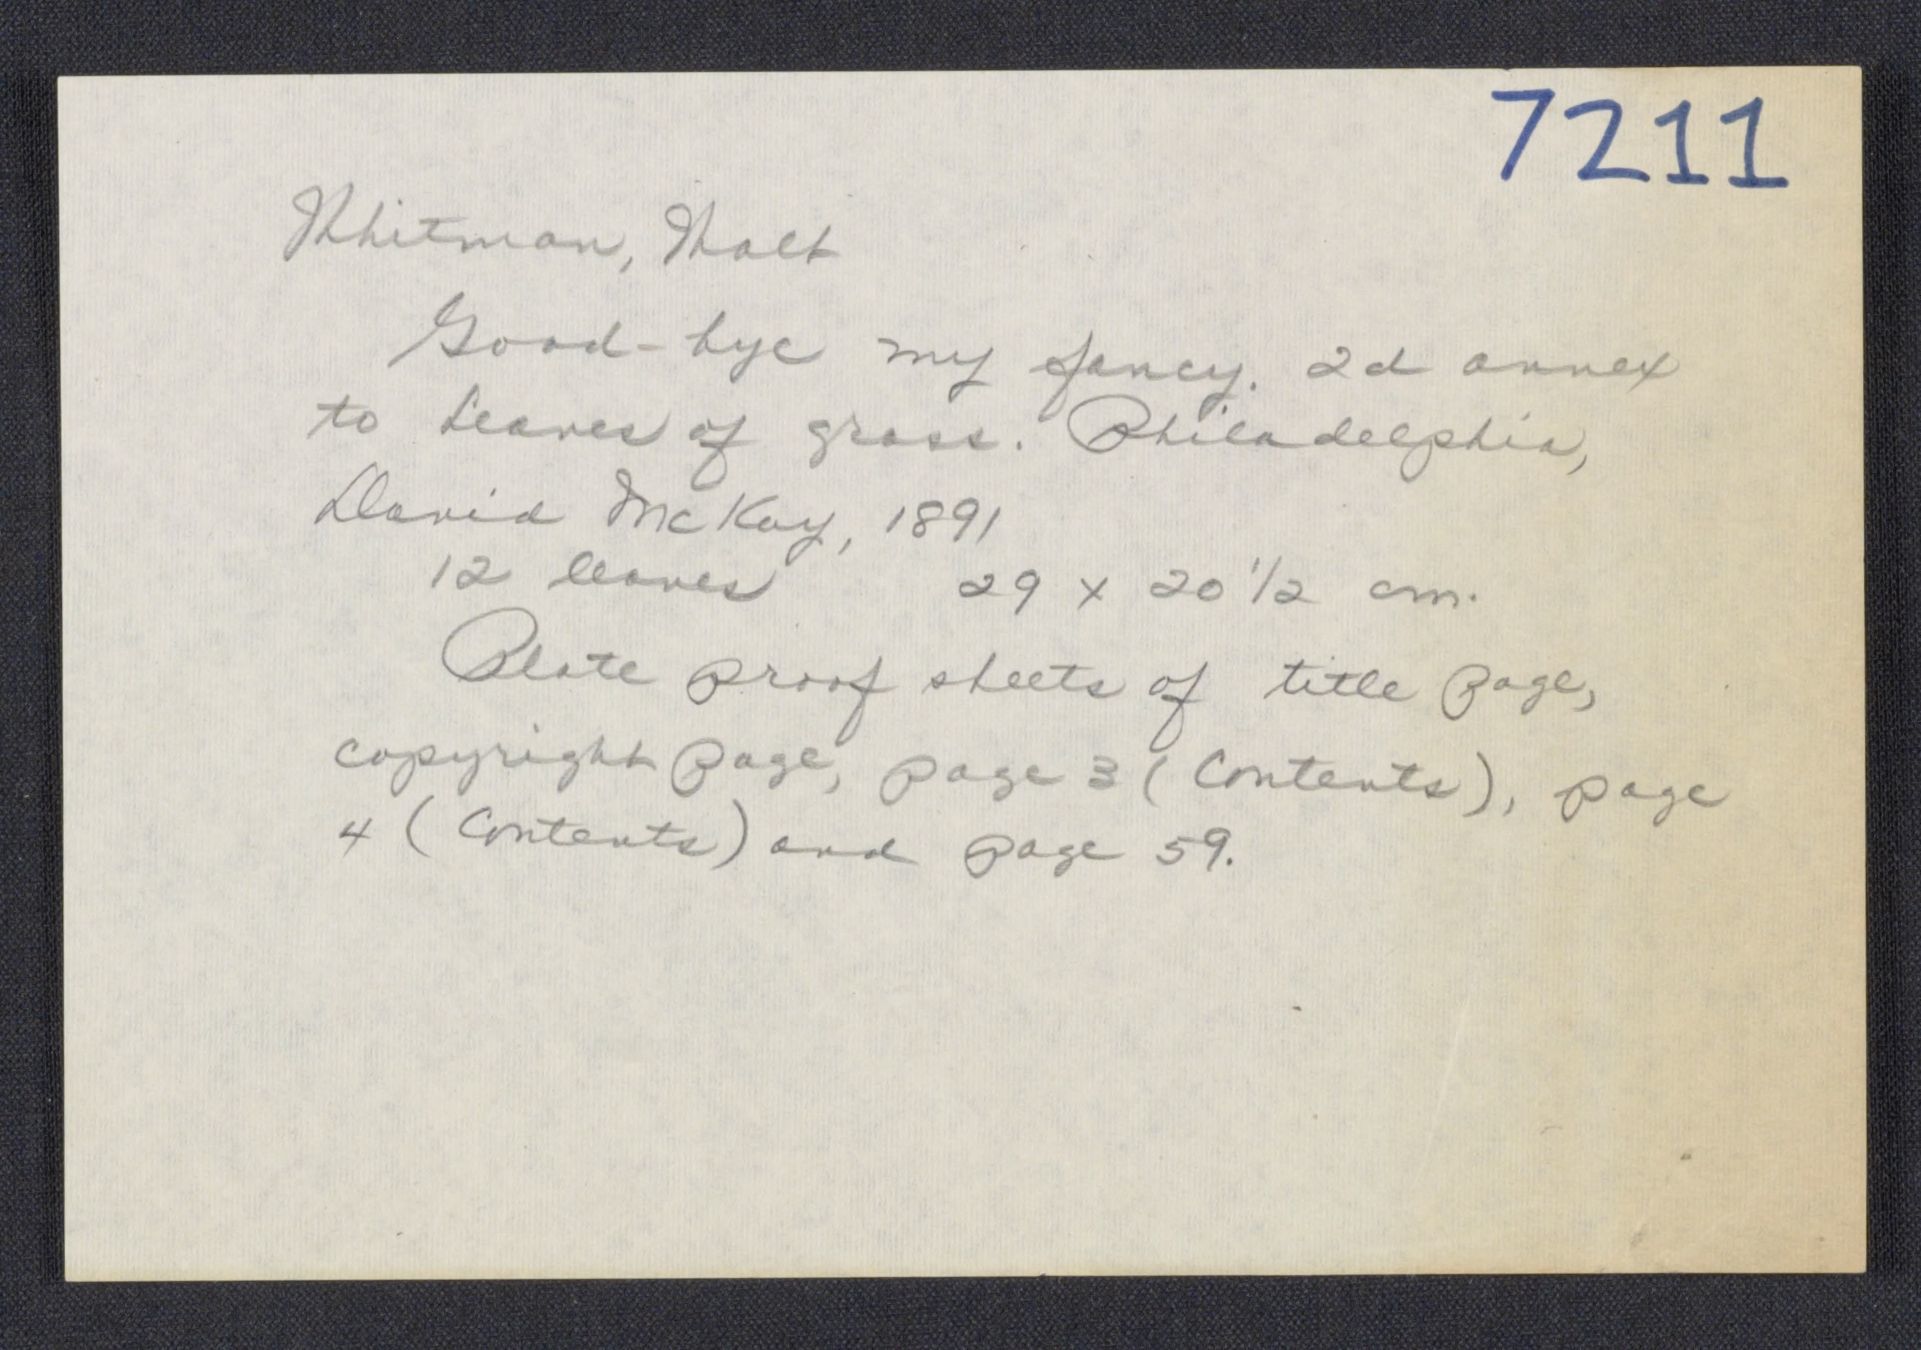 7211
Whitman, Walt
Good-bye my fancy. 2d annex
to Leaves of grass. Philadelphia,
David McKay, 1891
12 leaves 29 x 20 1/2 cm.
Plate proof sheets of title page,
copyright page, page 3 (Contents), page
4 (Contents) and page 59.